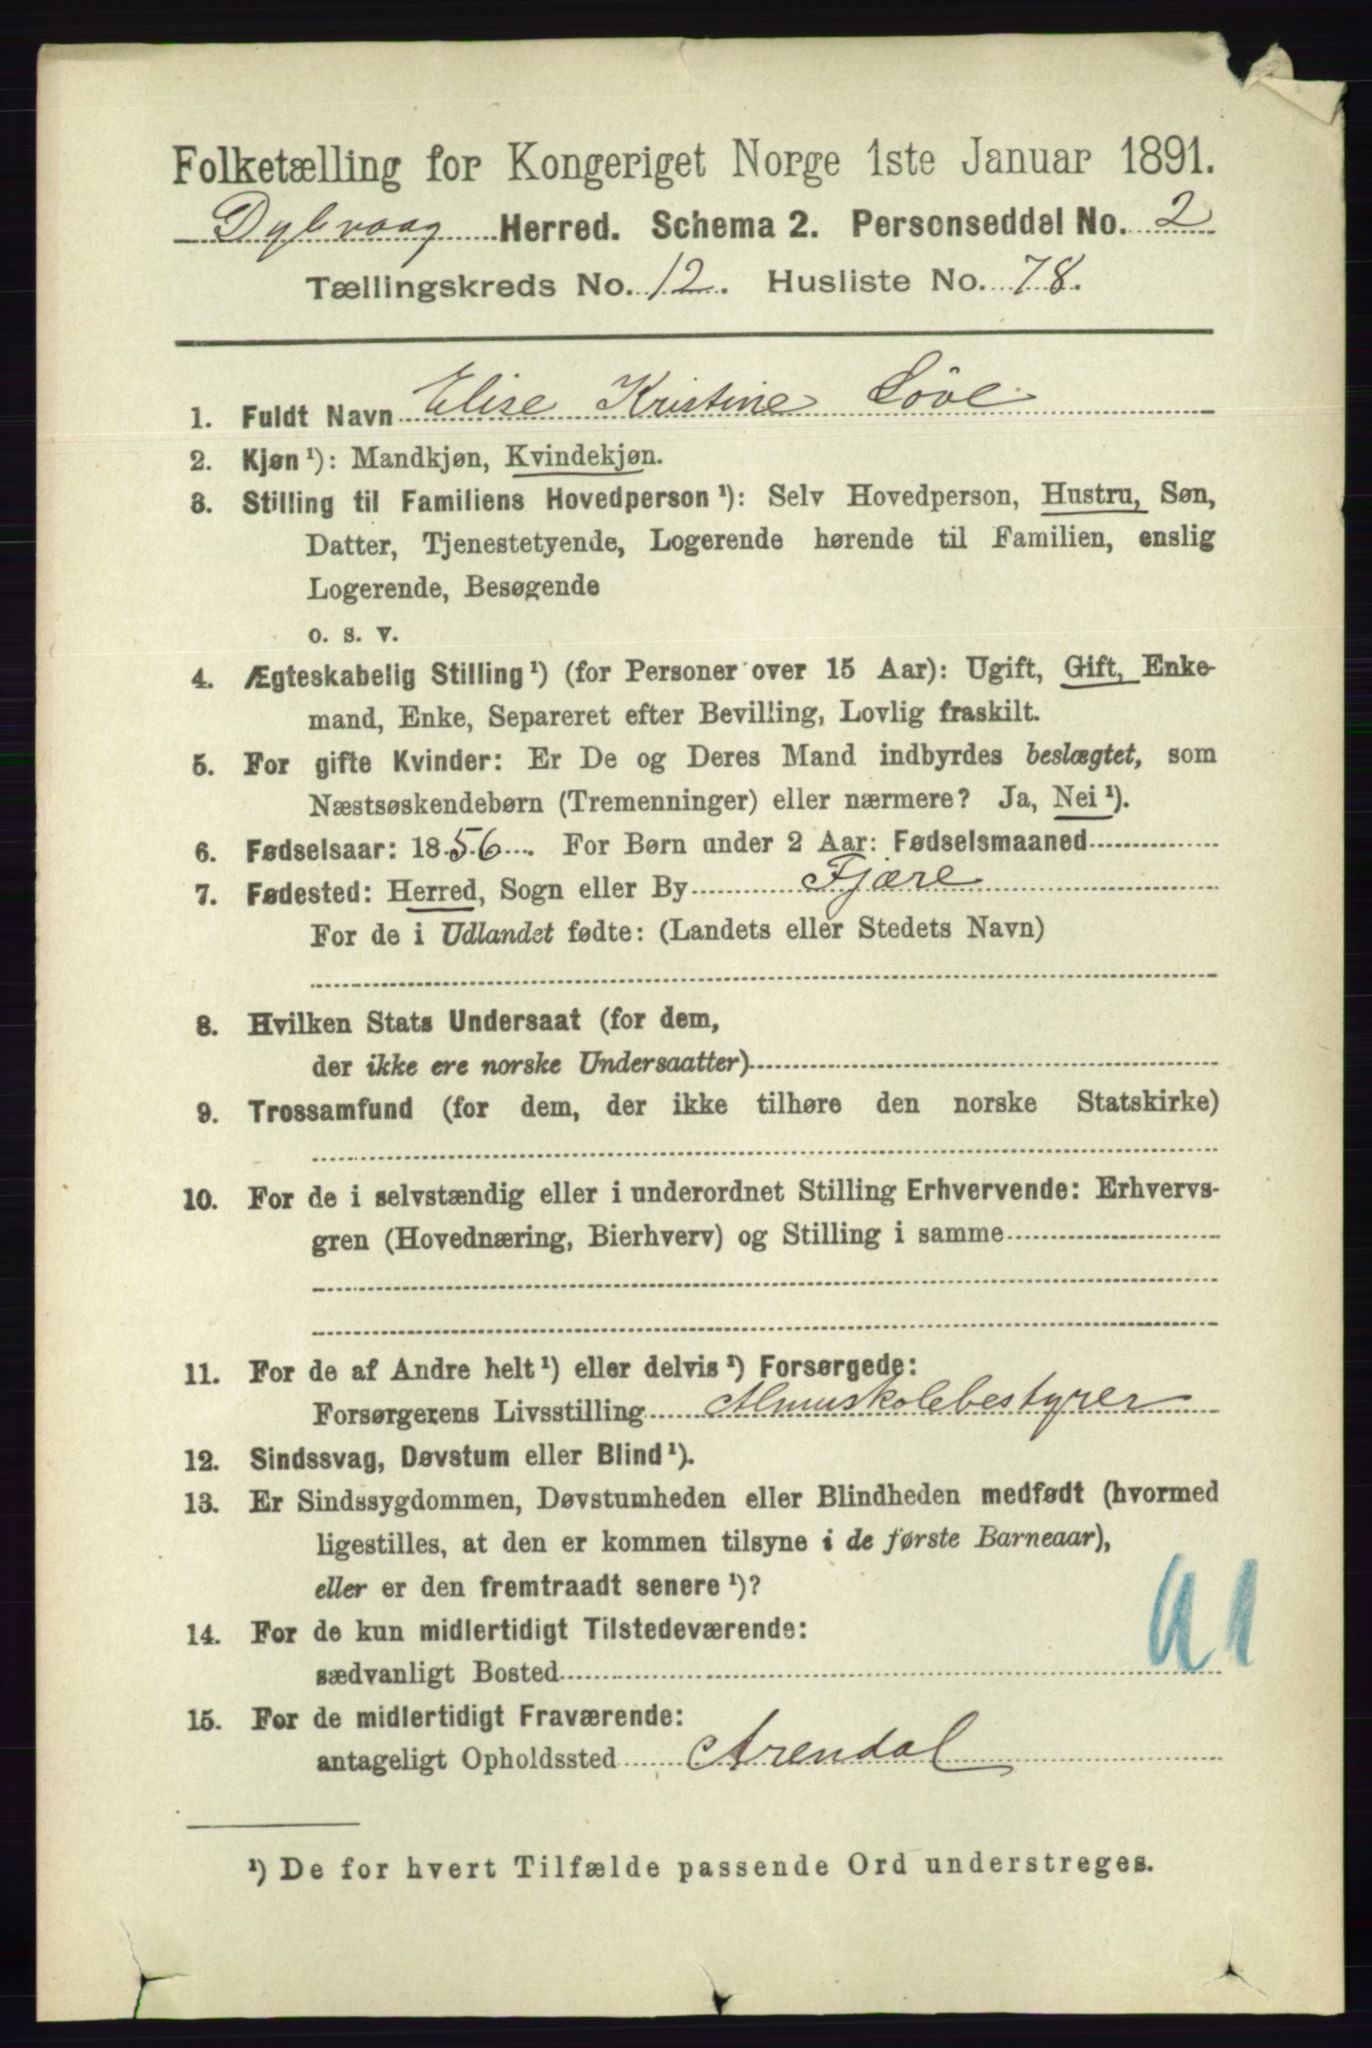 Folketælling for Kongeriget Norge 1ste Januar 1891.
Dybvaag Herred. Schema 2. Personseddel No. 2
Tællingskreds No. 12. Husliste No. 78.
1. Fuldt Navn Elise Kristine Löve
2. Kjøn ¹): Mandkjøn, Kvindekjøn.
3. Stilling til Familiens Hovedperson ¹): Selv Hovedperson, Hustru, Søn,
Datter, Tjenestetyende, Logerende hørende til Familien, enslig
Logerende, Besøgende
o. s. v.
4. Ægteskabelig Stilling ¹) (for Personer over 15 Aar): Ugift, Gift, Enke-
mand, Enke, Separeret efter Bevilling, Lovlig fraskilt.
5. For gifte Kvinder: Er De og Deres Mand indbyrdes beslægtet, som
Næstsøskendebørn (Tremenninger) eller nærmere? Ja, Nei ¹).
6. Fødselsaar: 1856. For Børn under 2 Aar: Fødselsmaaned
7. Fødested: Herred, Sogn eller By Fjære
For de i Udlandet fødte: (Landets eller Stedets Navn)
8. Hvilken Stats Undersaat (for dem,
der ikke ere norske Undersaatter)
9. Trossamfund (for dem, der ikke tilhøre den norske Statskirke)
10. For de i selvstændig eller i underordnet Stilling Erhvervende: Erhvervs-
gren (Hovednæring, Bierhverv) og Stilling i samme
11. For de af Andre helt ¹) eller delvis ¹) Forsørgede:
Forsørgerens Livsstilling Almuskolebestyrer
12. Sindssvag, Døvstum eller Blind ¹).
13. Er Sindssygdommen, Døvstumheden eller Blindheden medfødt (hvormed
ligestilles, at den er kommen tilsyne i de første Barneaar),
eller er den fremtraadt senere ¹)?
14. For de kun midlertidigt Tilstedeværende:
sædvanligt Bosted
15. For de midlertidigt Fraværende:
antageligt Opholdssted Arendal
¹) De for hvert Tilfælde passende Ord understreges.